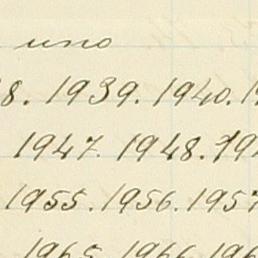 uno
8. 1939. 1940. 1
1947. 1948. 19
1955. 1956. 1957
1965 1966 196